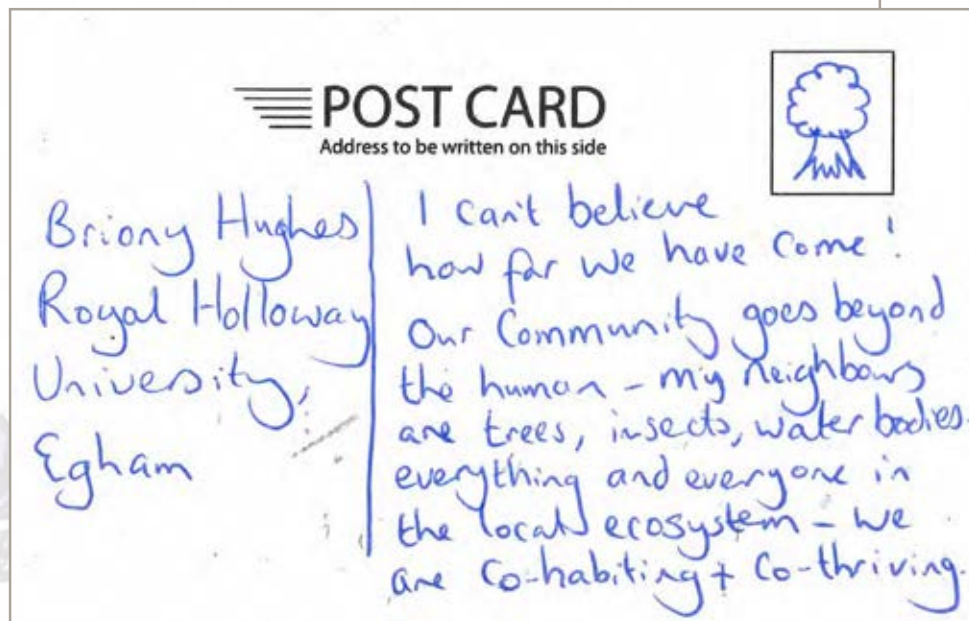 POST CARD
Address to be written on this side
Briony Hughes
Royal Holloway
University,
Egham
I can't believe
how far we have come!
Our Community goes beyond
the human - my neighbours
are trees, insects, water bodies -
everything and everyone in
the local ecosystem - we
are Co-habiting + Co-thriving.